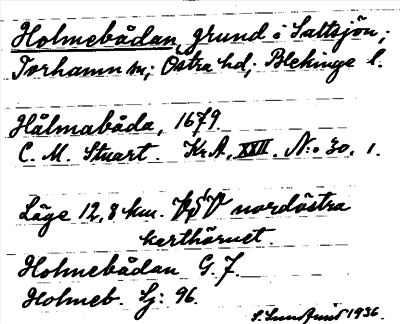 Holmebådan, grund i Saltsjön;
Torhamn sn; Östra hd; Blekinge l.
Hålmabåda, 1679
C. M. Stuart. Kr.A. XXII. N:o 30. 1.
Läge 12,8 km. nordöstra
karthörnet.
Holmebådan G. 7.
Holmeb. Sj: 96.
1936.